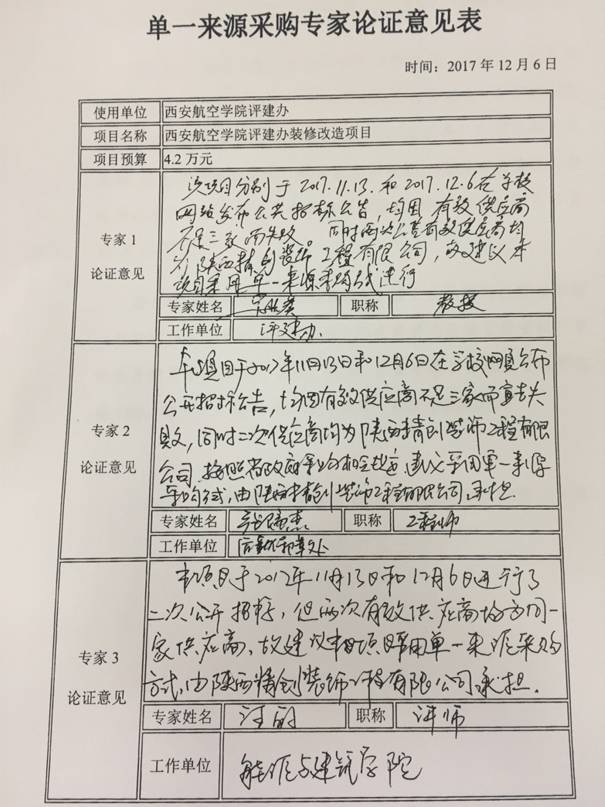 单一来源采购专家论证意见表
时间：2017 年 12 月 6 日
使用单位 西安航空学院评建办
项目名称 西安航空学院评建办装修改造项目
项目预算 4.2 万元
专家 1
论证意见
该项目分别于 2017.11.13. 和 2017.12.6 在学校
网站发布公共招标公告，均因 有效供应商
不足三家而失败 同时两次公告有效供应商均
为 陕西精创装饰工程有限公司，故建议本
项目采用单一来源采购方式进行
专家姓名 职称 教授
工作单位 评建办
专家 2
论证意见
本项目于2017年11月13日和12月6日在学校网页公布
公开招标公告，均因有效供应商不足三家而宣告失
败，同时二次供应商均为陕西精创装饰工程有限
公司，按照省政府采购相关规定 建议采用单一来源
采购方式，由陕西精创装饰工程有限公司承担.
专家姓名 职称 工程师
工作单位 后勤管理处
专家 3
论证意见
本项目于2017年11月13日和12月6日进行了
二次公开招标，但两次有效供应商均为同一
家供应商，故建议本项目采用单一来源采购
方式，由陕西精创装饰工程有限公司承担.
专家姓名 职称 讲师
工作单位 能源与建筑学院